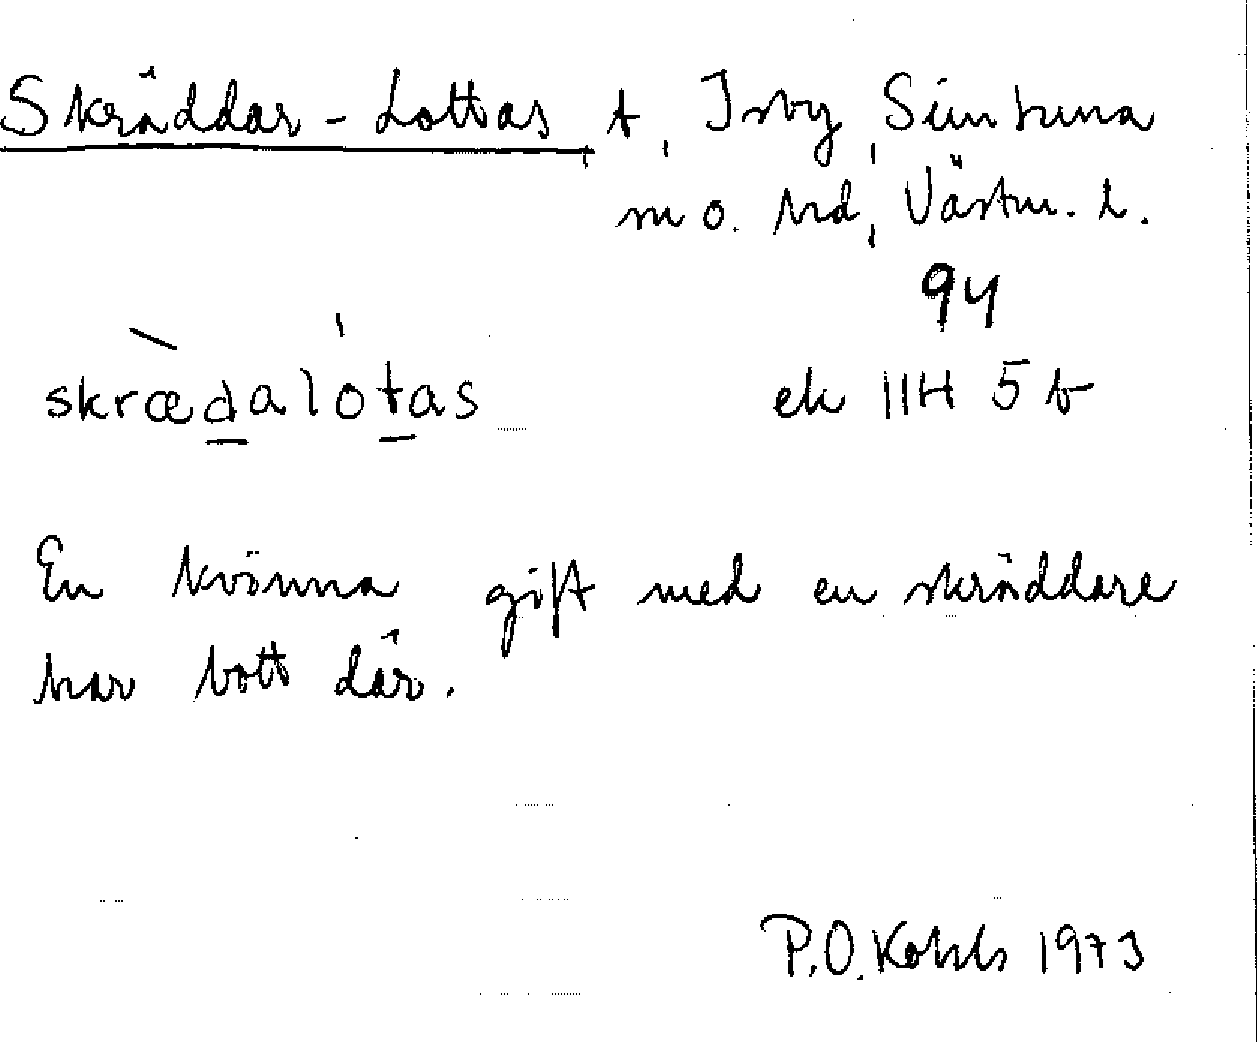 Skräddar-Lottas, t, Isby, Simtuna
sn o. hd, Västm. l.
94
skrædalo̍tas
ek 11H 5b
En kvinna gift med en skräddare
har bott där.
P.O. 1973